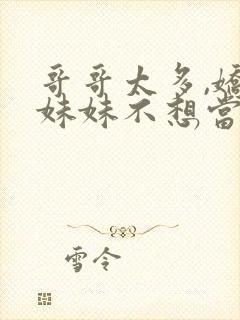 哥哥太多,嬌
妹妹不想當
雪令